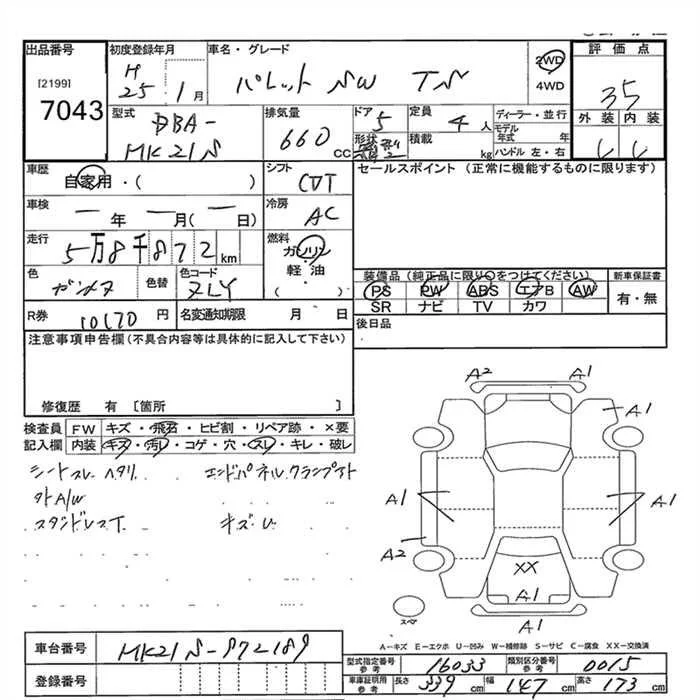 出品番号
[2199]
7043
初度登録年月
H
25 1月
車名・グレード
パレット SW TS
2WD
4WD
評価点
35
型式
DBA-
MK21S
排気量
660 CC
ドア
5
形状
定員
4人
積載
kg
ディーラー・並行
モデル
年式 年
ハンドル 左・右
外装 内装
車歴
自家用・( )
シフト
CVT
セールスポイント (正常に機能するものに限ります)
車検
年 月( 日)
冷房
AC
走行
5万8千872 km
燃料
ガソリン
軽・油
( )
色
ガンメタ
色替
色コード
ZLY
装備品(純正品に限り○をつけてください)
PS PW ABS エアB AW
SR ナビ TV カワ
新車保証書
有・無
R券
10170 円
名変通知期限 月 日
後日品
注意事項申告欄(不具合内容等は具体的に記入して下さい)
修復歴 有 〔箇所 〕
検査員
記入欄
FW キズ・飛石・ヒビ割・リペア跡・×要
内装 キズ・汚レ・コゲ・穴・スレ・キレ・破レ
シートスレ ヘタリ
外A/W
スタンドレスT
エンドパネルクランプ
キズU
A2 A1
A1
A1
A1
A2
XX
A1
A1
スペア
車台番号
MK21S-972189
登録番号
A−キズ E−エクボ U−凹み W−補修跡 S−サビ C−腐食 XX−交換済
型式指定番号
参考
16033
類別区分番号
参考
0015
車庫証明用
参考
長さ 339 cm 幅 147 cm 高さ 173 cm